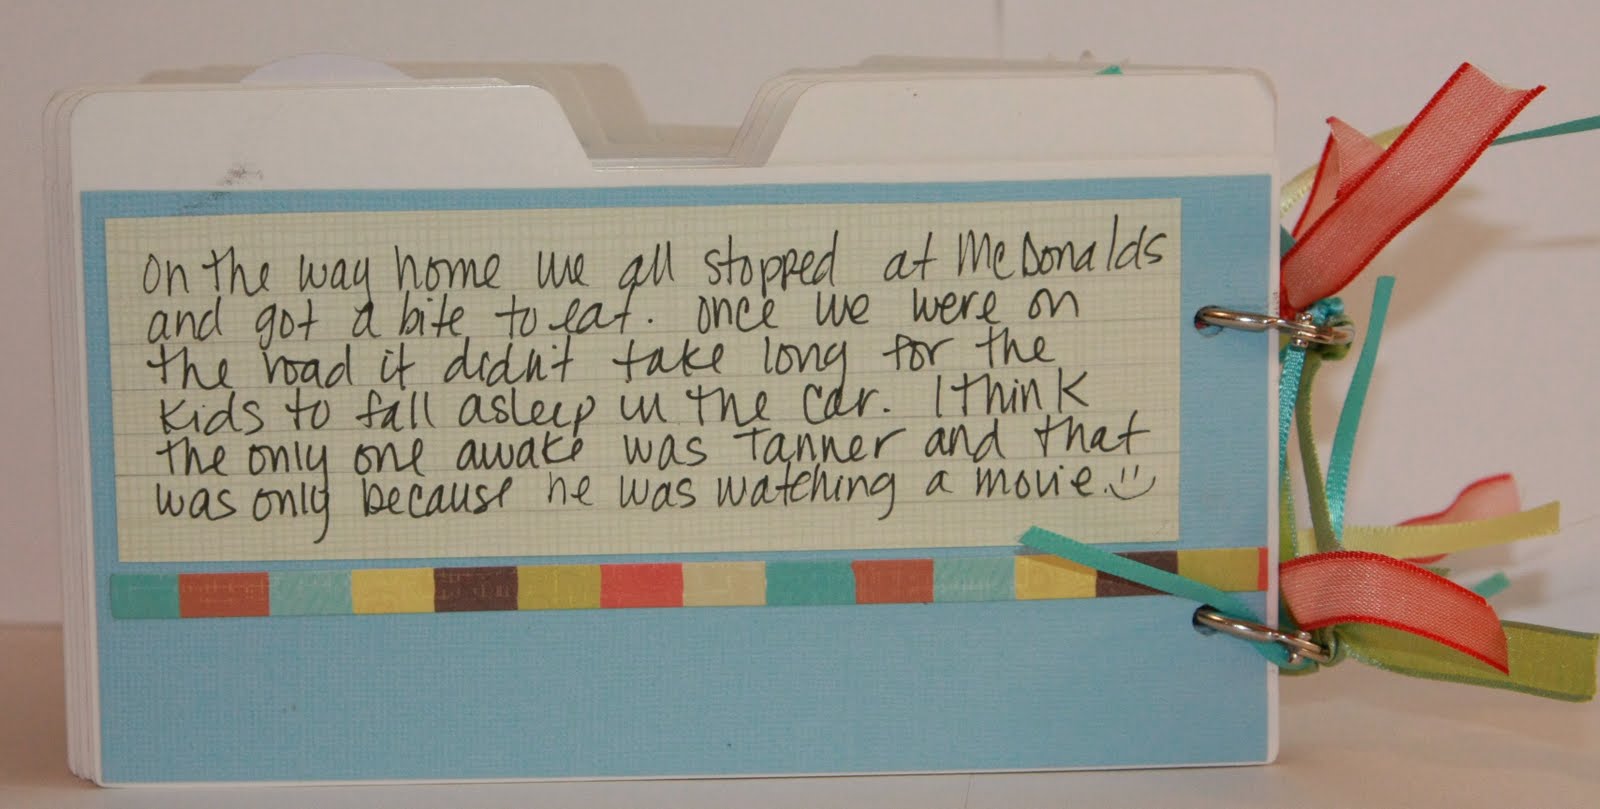 on the way home we all stopped at McDonalds
and got a bite to eat. once we were on
the road it didn't take long for the
kids to fall asleep in the car. I think
the only one awake was Tanner and that
was only because he was watching a movie. :)